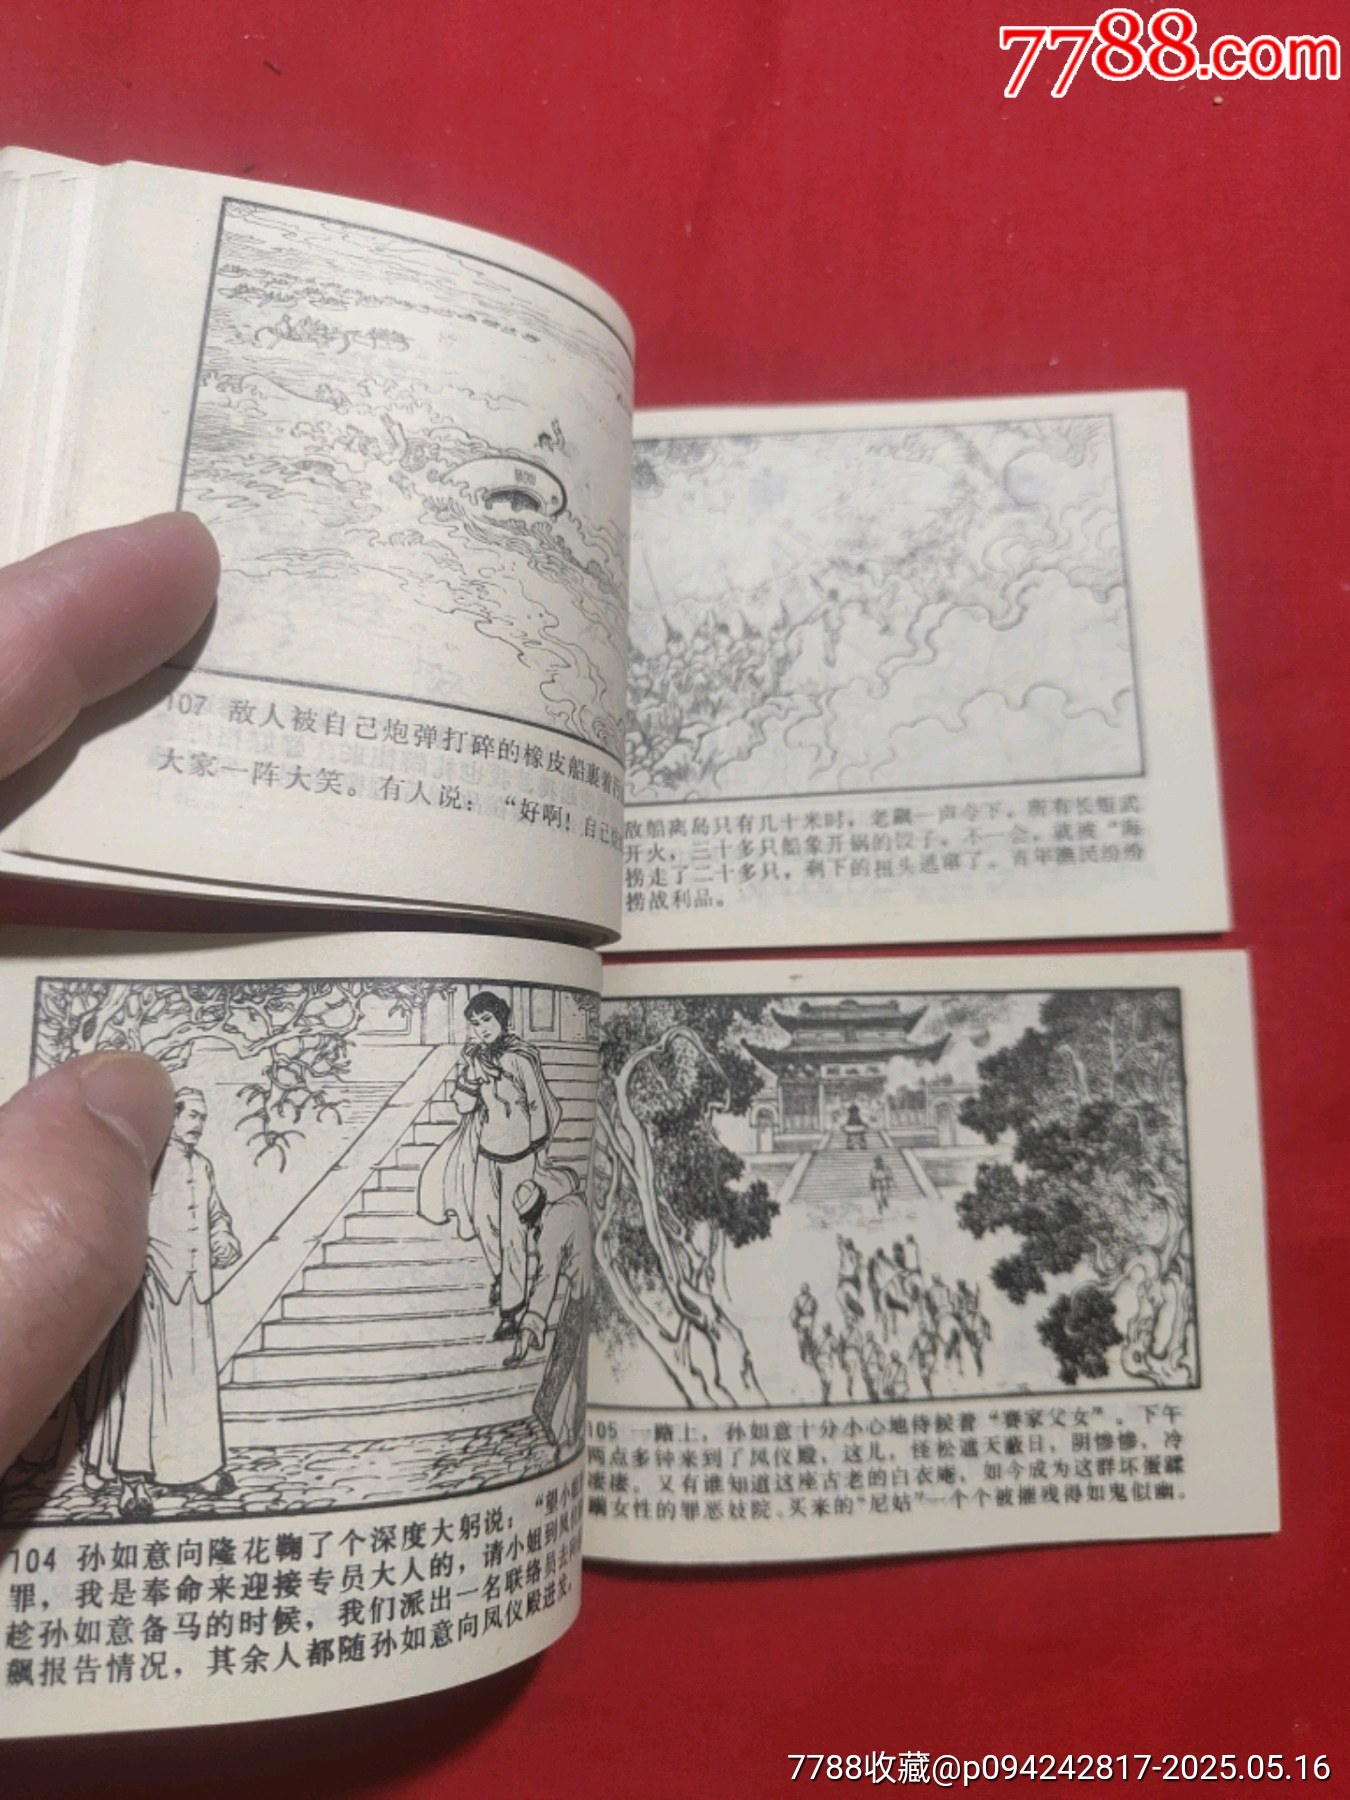 7788.com
107 敌人被自己炮弹打碎的橡皮船裹着
大家一阵大笑。有人说：“好啊！自己
敌船离岛只有几十米时，老飙一声令下，所有长短武
开火，三十多只船象开锅的饺子。不一会，就被“海
捞走了二十多只，剩下的扭头逃窜了。青年渔民纷纷
捞战利品。
104 孙如意向隆花鞠了个深度大躬说：“望小姐
罪，我是奉命来迎接专员大人的，请小姐到凤仪
趁孙如意备马的时候，我们派出一名联络员去向
飙报告情况，其余人都随孙如意向凤仪殿进发。
105 一路上，孙如意十分小心地侍候着“赛家父女”。下午
两点多钟来到了凤仪殿，这儿，怪松遮天蔽日，阴惨惨，冷
凄凄。又有谁知道这座古老的白衣庵，如今成为这群坏蛋蹂
躏女性的罪恶妓院、买来的“尼姑”一个个被摧残得如鬼似幽。
7788收藏@p094242817-2025.05.16